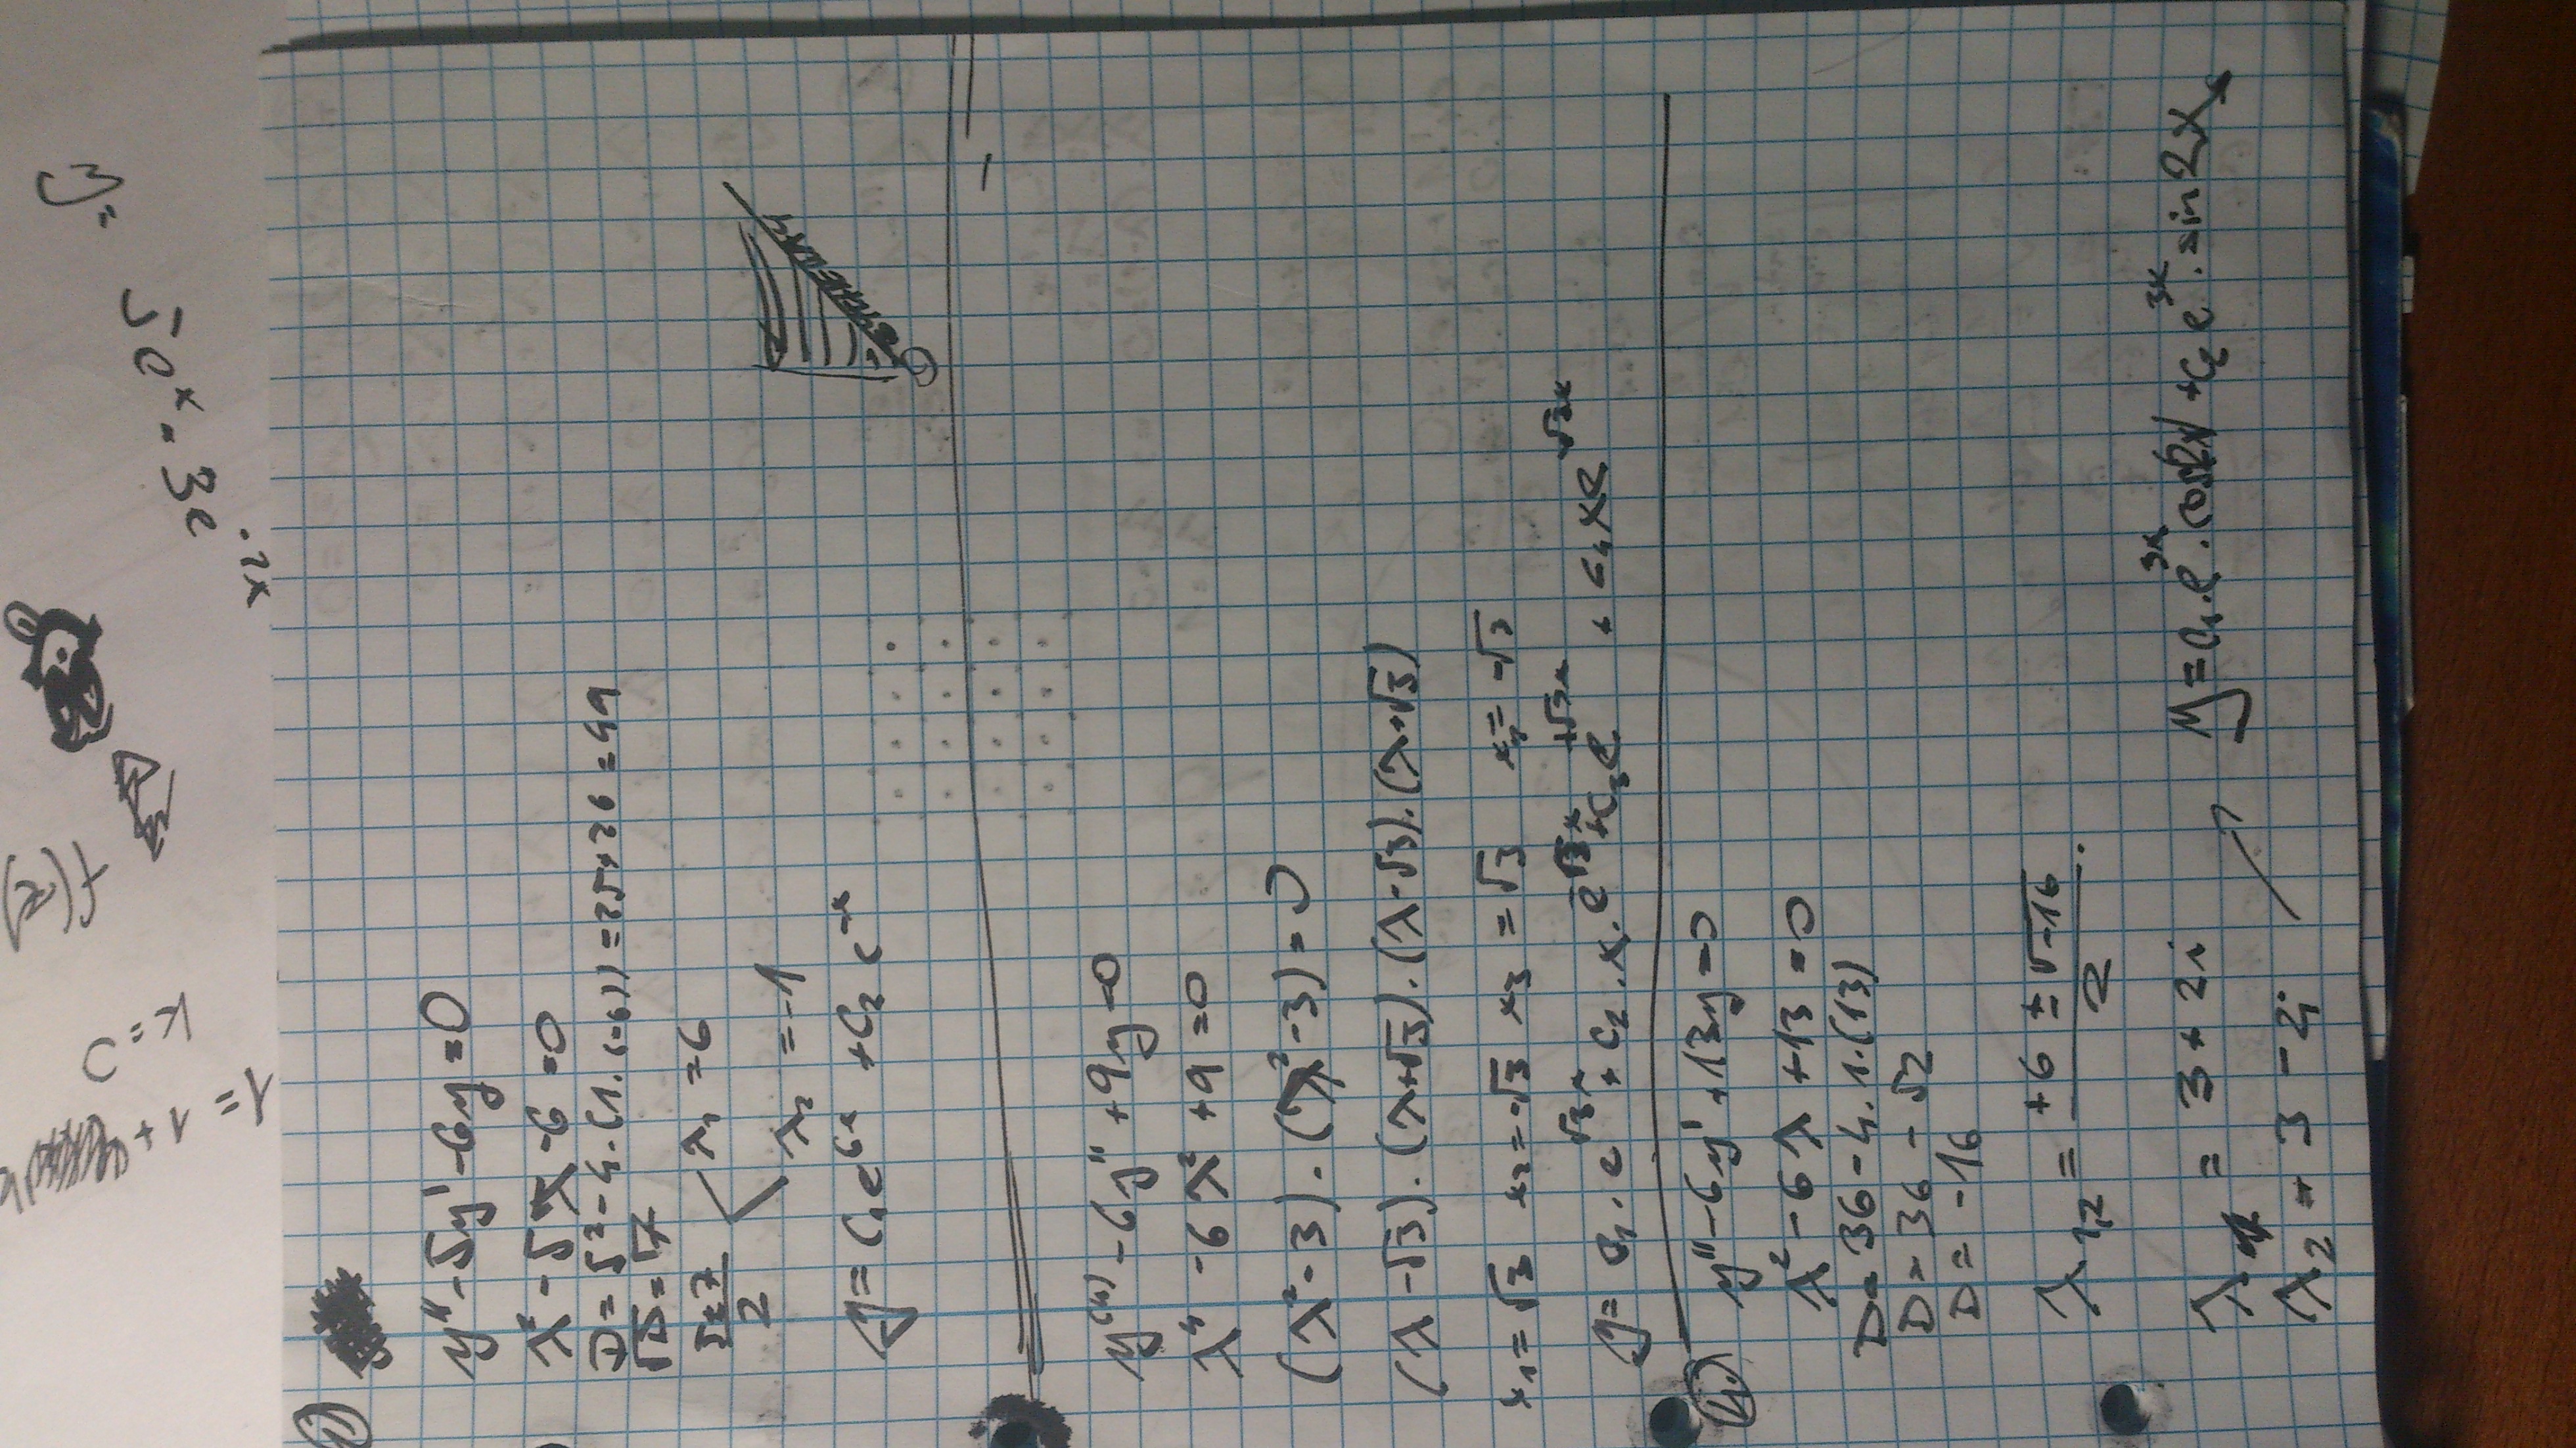 C=1
+1=Y
f(x)
y=
50x · 3e
·2x
1)
y'' - 5y' - 6y = 0
λ² - 5λ - 6 = 0
D = 5² - 4·(1·(-6)) = 25+26 = 49
√D = 7
5±7 / 2
λ₁ = 6
λ₂ = -1
y = C₁e^(6x) + C₂ e^(-x)
y⁽⁴⁾ - 6y'' + 9y = 0
λ⁴ - 6λ² + 9 = 0
(λ² - 3)·(λ² - 3) = 0
(λ - √3)·(λ + √3)·(λ - √3)·(λ + √3)
x₁ = √3 x₂ = -√3 x₃ = √3 x₄ = -√3
y = C₁·e^(√3x) + C₂·x·e^(√3x) + C₃e^(+√3x) + C₄xe^(-√3x)
4.)
y'' - 6y' + 13y = 0
λ² - 6λ + 13 = 0
D = 36 - 4·1·(13)
D = 36 - 52
D = -16
λ₁,₂ = +6 ± √-16 / 2
λ₁ = 3 + 2i
y = C₁·e^(3x)·cos2x + C₂e^(3x)·sin2x
λ₂ = 3 - 2i